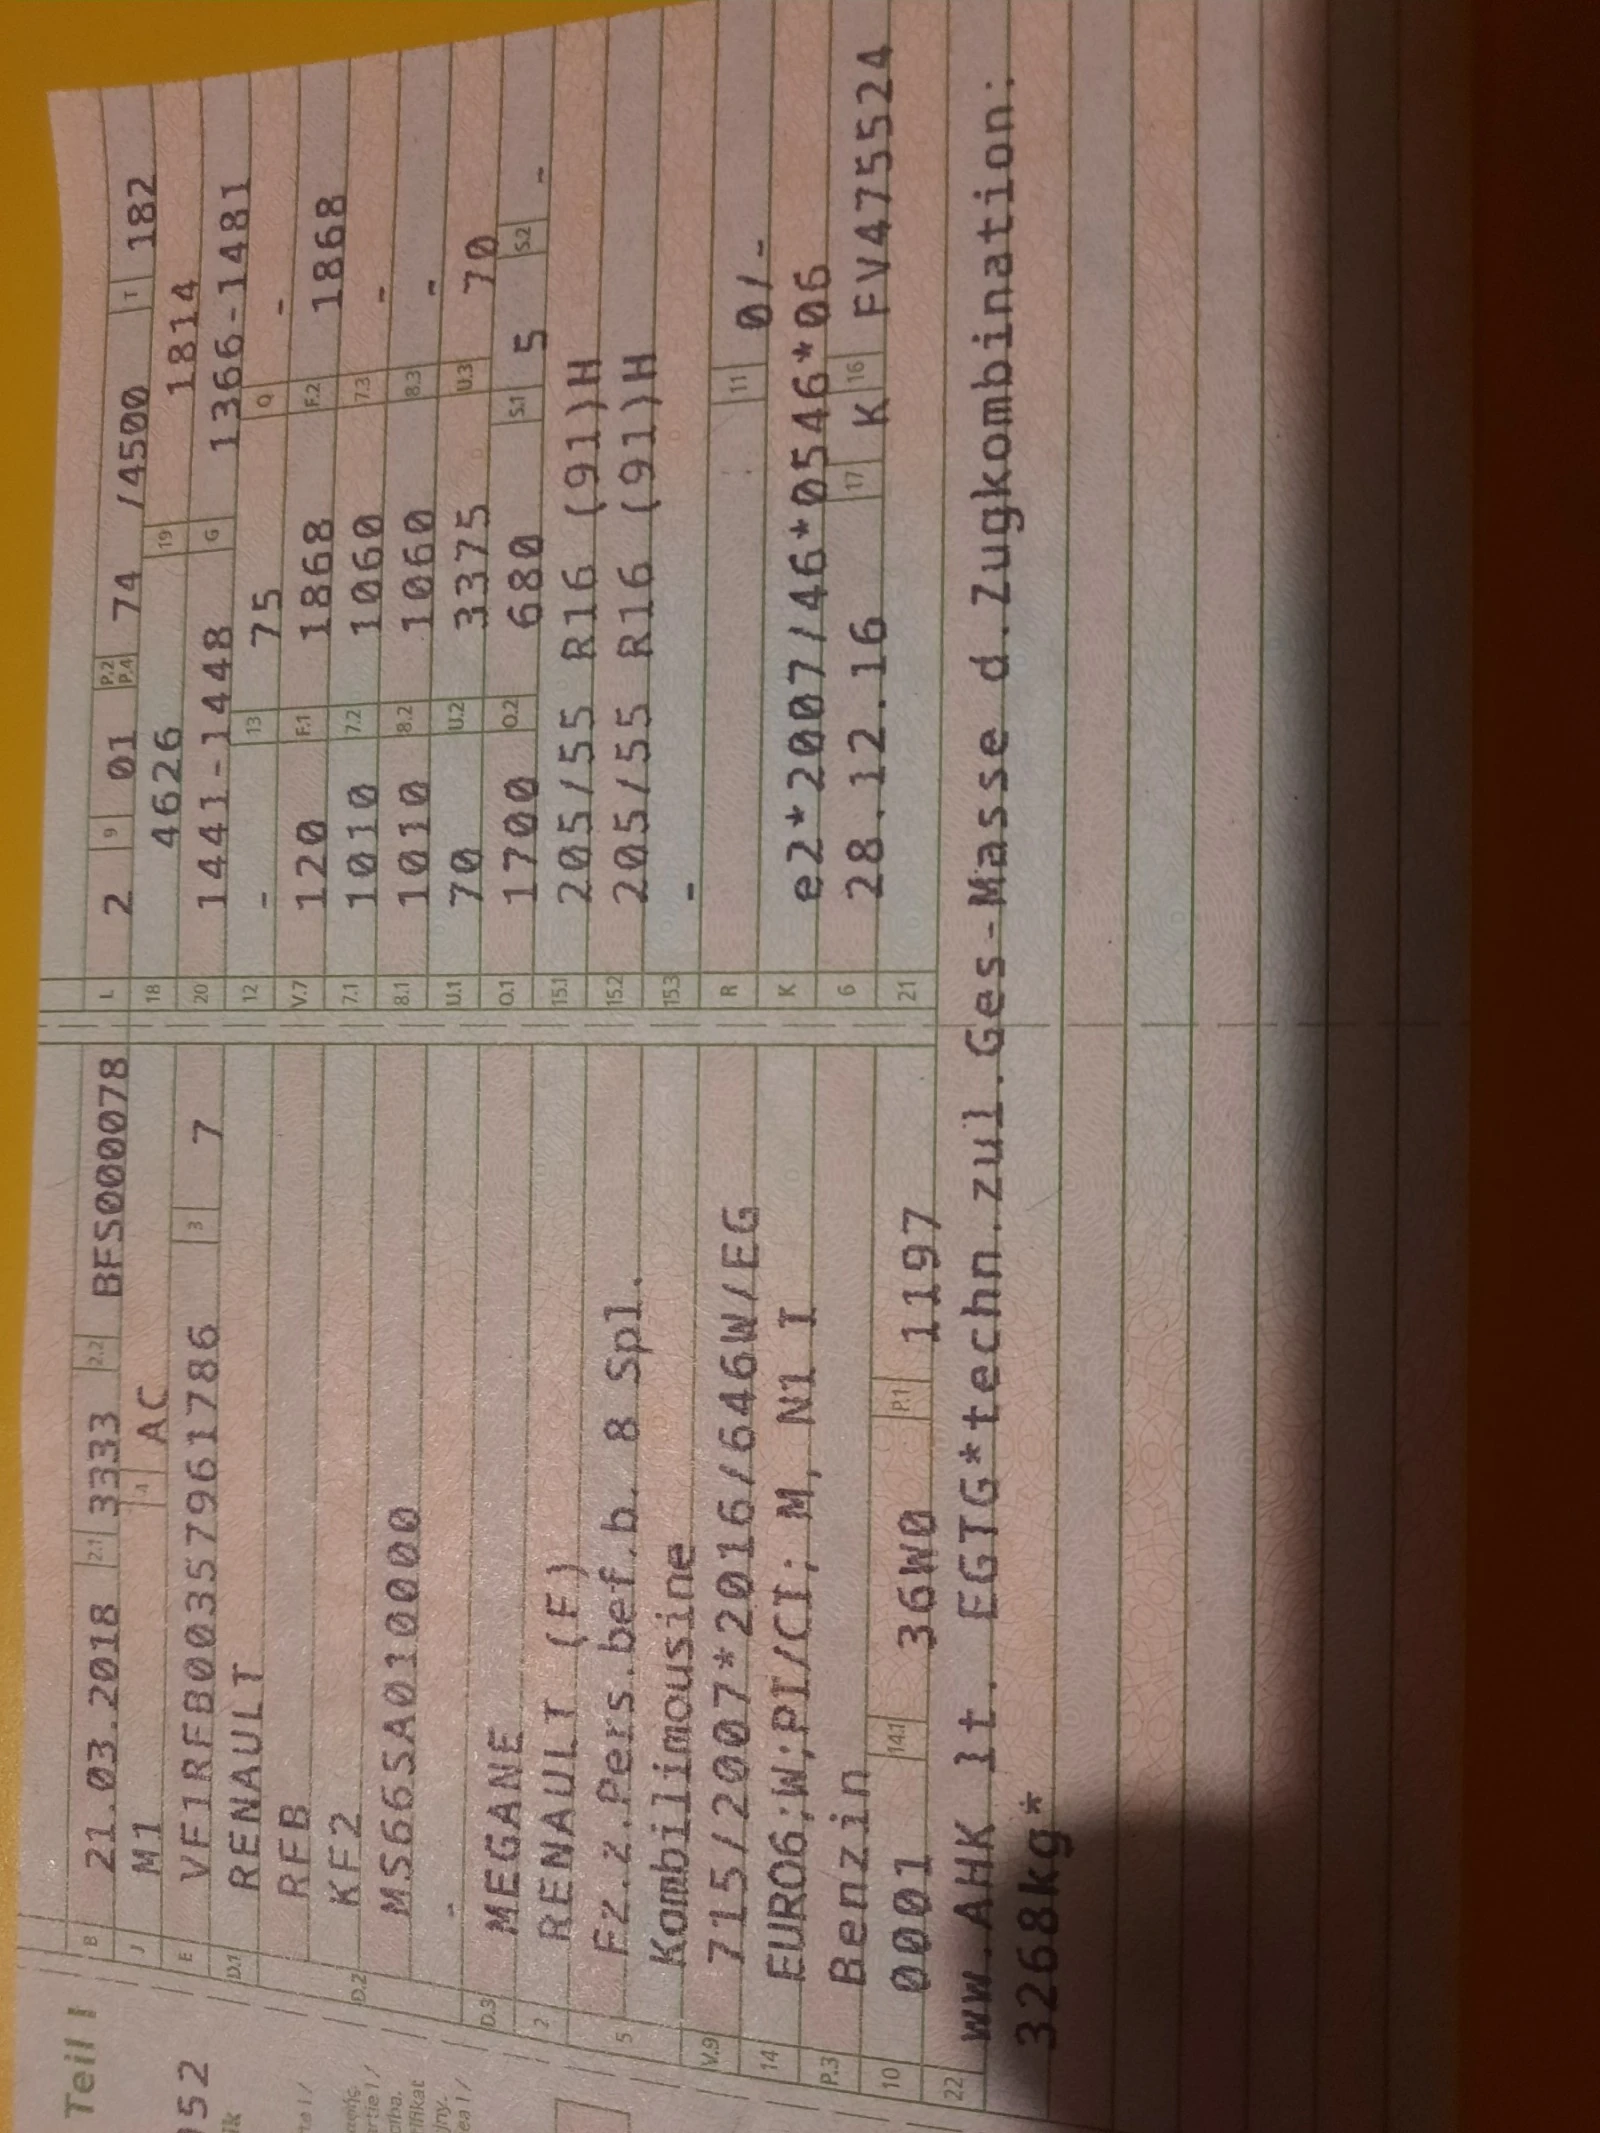 Teil I
B 21.03.2018 2.1 3333 2.2 BFS000078
J M1 4 AC
E VF1RFB00357961786 3 7
D.1 RENAULT
RFB
D.2 KF2
MS66SA010000
-
D.3 MEGANE
2 RENAULT (F)
5 Fz.z.Pers.bef.b. 8 Spl.
Kombilimousine
V.9 715/2007*2016/646W/EG
14 EURO6;W;PI/CI; M, N1 I
P.3 Benzin
10 0001 14.1 36W0 P.1 1197
L 2 9 01 P.2 P.4 74 /4500 T 182
18 4626 19 1814
20 1441-1448 G 1366-1481
12 - 13 75 Q -
V.7 120 F.1 1868 F.2 1868
7.1 1010 7.2 1060 7.3 -
8.1 1010 8.2 1060 8.3 -
U.1 70 U.2 3375 U.3 70
O.1 1700 O.2 680 S.1 5 S.2 -
15.1 205/55 R16 (91)H
15.2 205/55 R16 (91)H
15.3 -
R 11 0/-
K e2*2007/46*0546*06
6 28.12.16 17 K 16 FV475524
21
22 ww.AHK lt. EGTG*techn.zul.Ges-Masse d.Zugkombination:
3268kg*
052